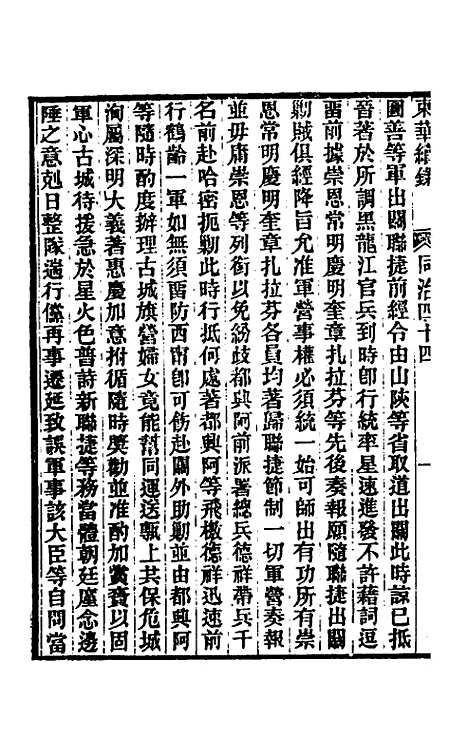 東華續錄　同治四十四　一
圖善等軍出關聯捷前經令由山陝等省取道出關此時諒已抵
晉著於所調黑龍江官兵到時卽行統率星速進發不許藉詞逗
畱前據崇恩常明慶明奎章扎拉芬等先後奏報願隨聯捷出關
剿賊俱經降旨允准軍營事權必須統一始可師出有功所有崇
恩常明慶明奎章扎拉芬各員均著歸聯捷節制一切軍營奏報
並毋庸崇恩等列銜以免紛歧都興阿前派署總兵德祥帶兵千
名前赴哈密扼剿此時行抵何處著都興阿等飛檄德祥迅速前
行鶴齡一軍如無須畱防西甯卽可飭赴關外助剿並由都興阿
等隨時酌度辦理古城旗營婦女竟能幫同運送甎上共保危城
洵屬深明大義著惠慶加意拊循隨時獎勸並准酌加賞賚以固
軍心古城待援急於星火色普詩新聯捷等務當體朝廷廑念邊
陲之意剋日整隊遄行儻再事遷延致誤軍事該大臣等自問當